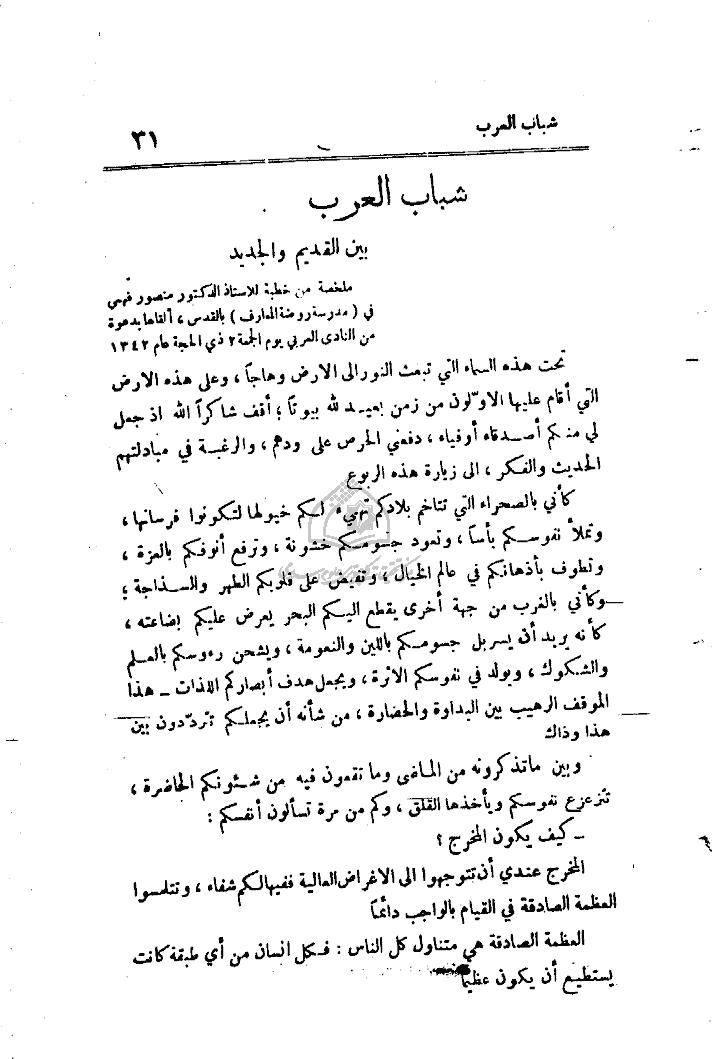 شباب العرب
٣١
شباب العرب
بين القديم والجديد
ملخصة من خطبة للاستاذ الدكتور منصور فهمي
في ( مدرسة روضة المعارف ) بالقدس ، ألقاها بدعوة
من النادى العربي يوم الجمعة ٢ ذي الحجة عام ١٣٤٢
تحت هذه السماء التي تبعث النور الى الارض وهاجاً ، وعلى هذه الارض
التي أقام عليها الاوّلون من زمن بعيد لله بيوتاً ؛ أقف شاكراً الله اذ جعل
لي منكم أصدقاء أوفياء ، دفعني الحرص على ودهم ، والرغبة في مبادلتهم
الحديث والفكر ، الى زيارة هذه الربوع
كأني بالصحراء التي تتاخم بلادكم تهيء لكم خيولها لتكونوا فرسانها ،
وتملأ نفوسكم بأساً ، وتعود جسومكم خشونة ، وترفع أنوفكم بالعزة ،
وتطوف بأذهانكم في عالم الخيال ، وتفيض على قلوبكم الطهر والسذاجة ؛
وكأني بالغرب من جهة أخرى يقطع اليكم البحر يعرض عليكم بضاعته ،
كأنه يريد أن يسربل جسومكم باللين والنعومة ، ويشحن رءوسكم بالعلم
والشكوك ، ويولد في نفوسكم الاثرة ، ويجعل هدف أبصاركم اللذات ــ هذا
الموقف الرهيب بين البداوة والحضارة ، من شأنه أن يجعلكم تردّدون بين
هذا وذاك
وبين ماتذكرونه من الماضى وما تقعون فيه من شئونكم الحاضرة ،
تتزعزع نفوسكم ويأخذها القلق ، وكم من مرة تسألون أنفسكم :
ــ كيف يكون المخرج ؟
المخرج عندي أن تتوجهوا الى الاغراض العالية ففيها لكم شفاء ، وتتلمسوا
العظمة الصادقة في القيام بالواجب دائماً
العظمة الصادقة هي متناول كل الناس : فكل انسان من أي طبقة كانت
يستطيع أن يكون عظيماً